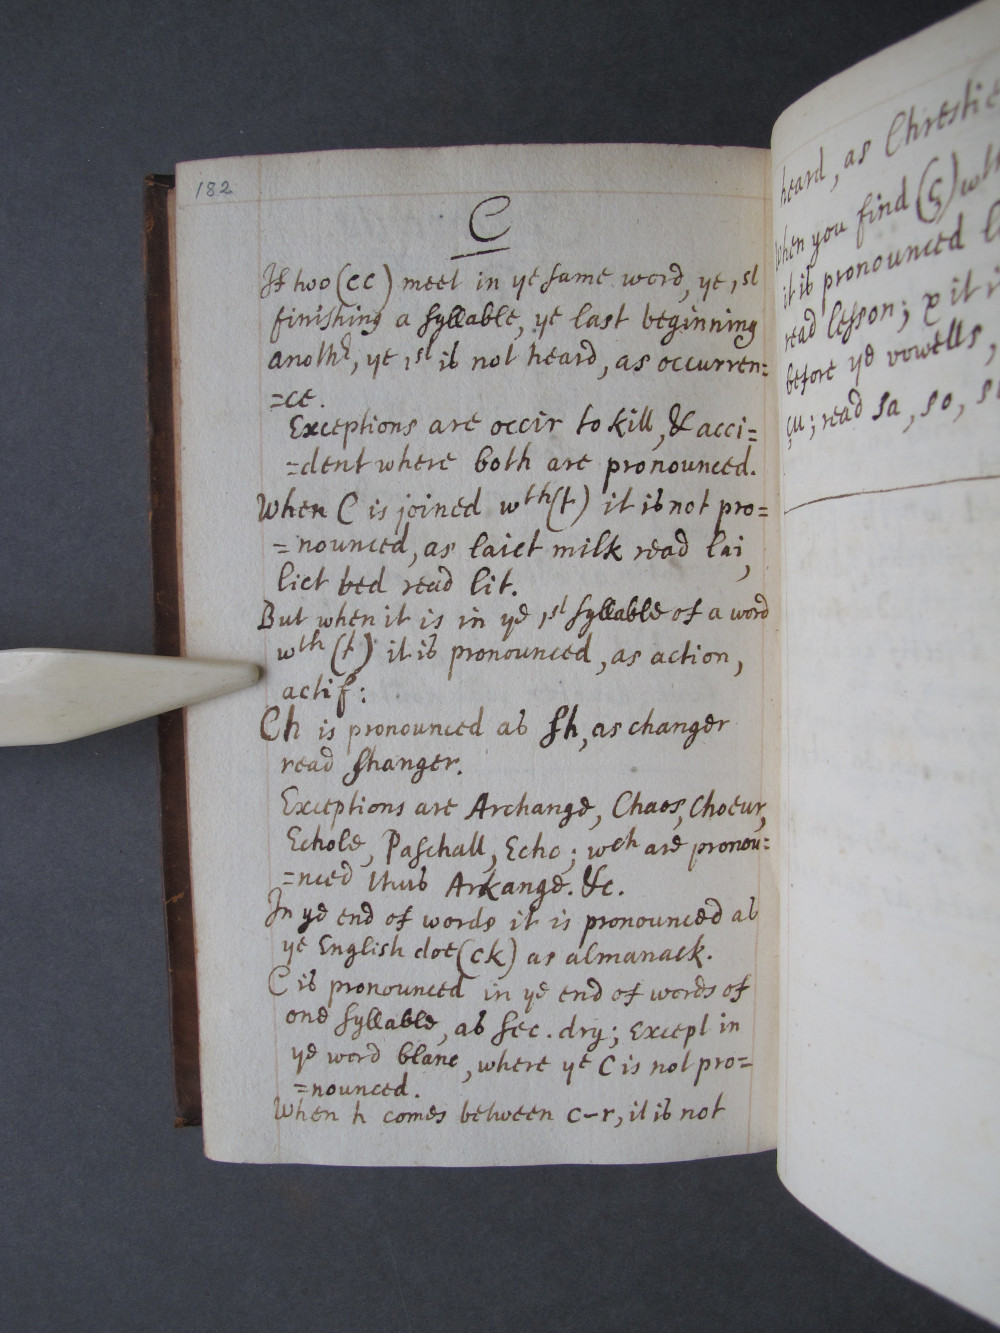 182
C
If two (cc) meet in ye same word, ye 1st
finishing a syllable, ye last beginning
anothr, ye 1st is not heard, as occurren=
=ce.
Exceptions are occir to kill, & acci=
=dent where both are pronounced.
When C is joined wth (t) it is not pro=
=nounced, as laict milk read lai,
lict bed read lit.
But when it is in ye 1st syllable of a word
wth (t) it is pronounced, as action,
actif:
Ch is pronounced as sh, as changer
read shanger.
Exceptions are Archange, Chaos, Choeur,
Echole, Paschall, Echo; wch are pronou=
=nced thus Arkange. &c.
In ye end of words it is pronounced as
ye English doe (ck) as almanack.
C is pronounced in ye end of words of
one syllable, as sec. dry; Except in
ye word blanc, where ye C is not pro=
=nounced.
When h comes between c-r, it is not
heard, as Chrestie
When you find (ç) wth
it is pronounced
read lesson; & it
before ye vowells,
çu; read sa, so,